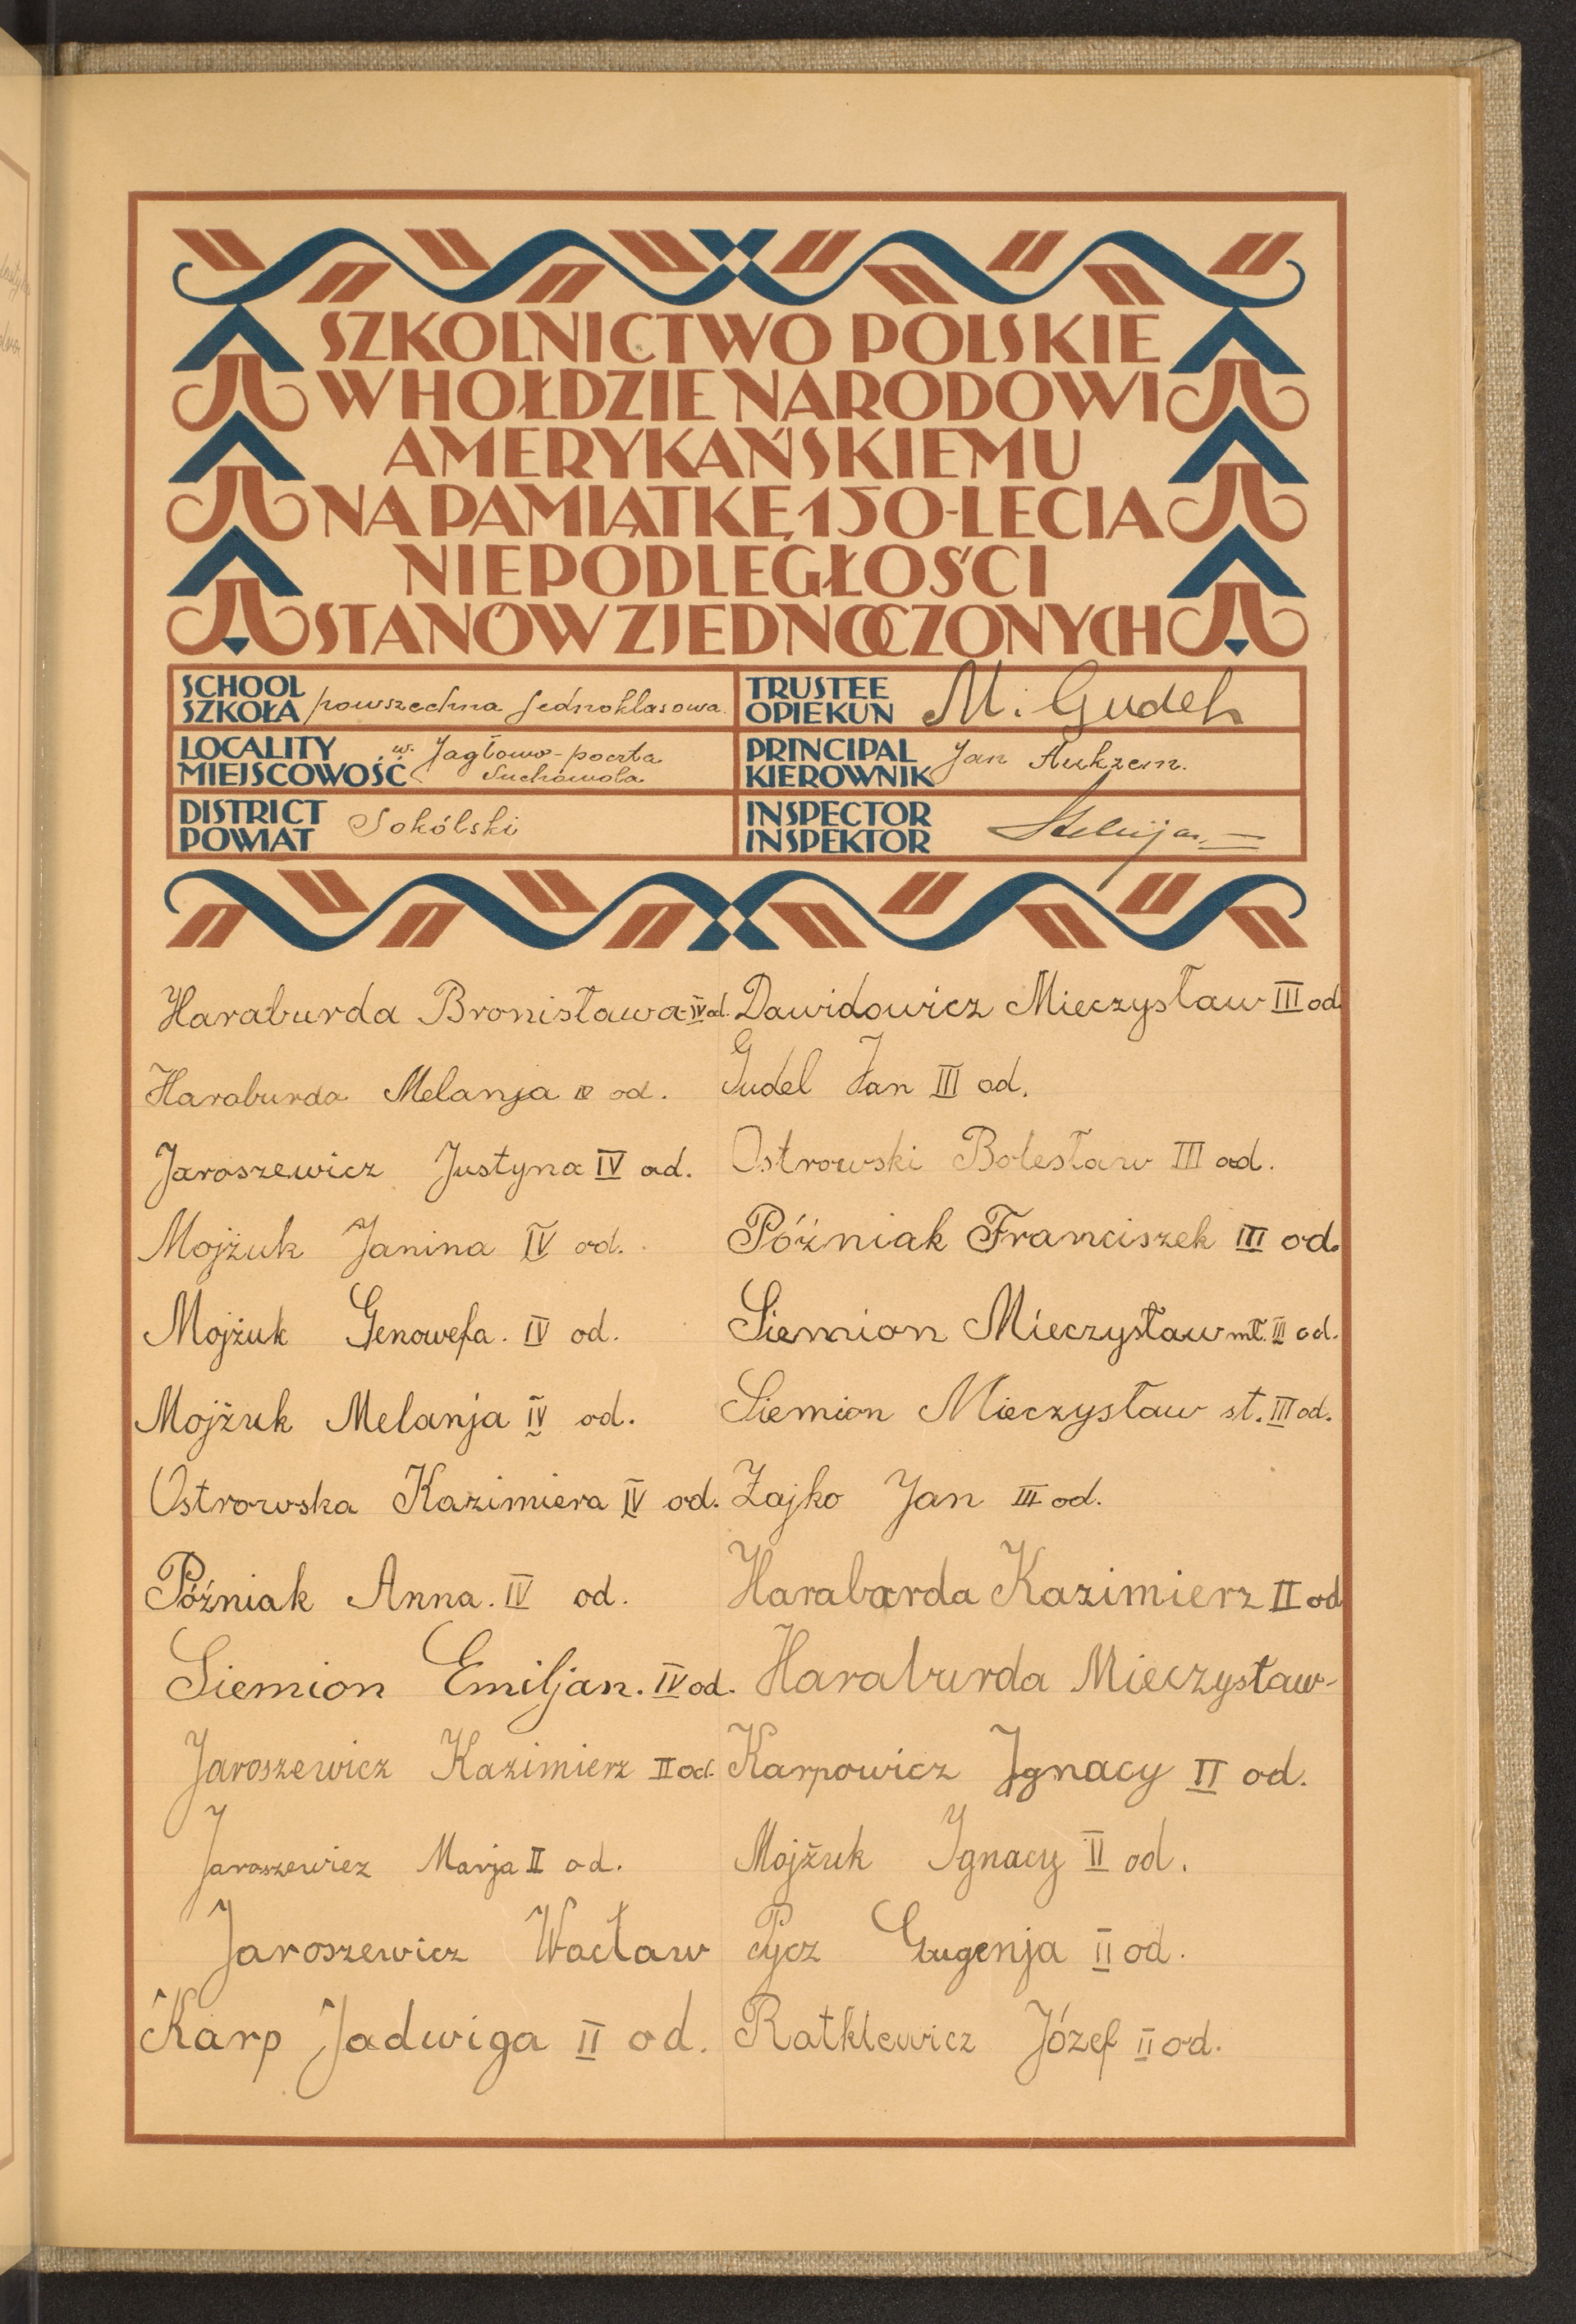 SZKOLNICTWO POLSKIE
W HOŁDZIE NARODOWI
AMERYKAŃSKIEMU
NA PAMIĄTKĘ 150-LECIA
NIEPODLEGŁOŚCI
STANÓW ZJEDNOCZONYCH
SCHOOL
SZKOŁA powszechna jednoklasowa.
LOCALITY w. Jagłowo - poczta
MIEJSCOWOŚĆ Suchowola
DISTRICT
POWIAT Sokólski
TRUSTEE
OPIEKUN M. Gudel
PRINCIPAL
KIEROWNIK Jan
INSPECTOR
INSPEKTOR
Haraburda Bronisława IV od.
Haraburda Melanja IV od.
Jaroszewicz Justyna IV od.
Mojżuk Janina IV od.
Mojżuk Genowefa. IV od.
Mojżuk Melanja IV od.
Ostrowska Kazimiera IV od.
Póżniak Anna. IV od.
Siemion Emiljan. IV od.
Jaroszewicz Kazimierz II od.
Jaroszewicz Marja II od.
Jaroszewicz Wacław
Karp Jadwiga II od.
Dawidowicz Mieczysław III od
Gudel Jan III od.
Ostrowski Bolesław III od.
Póżniak Franciszek III od.
Siemion Mieczysław mł. III od.
Siemion Mieczysław st. III od.
Zajko Jan III od.
Haraburda Kazimierz II od
Haraburda Mieczysław-
Karpowicz Ignacy II od.
Mojżuk Ignacy II od.
Pycz Eugenja II od.
Ratkiewicz Józef II od.